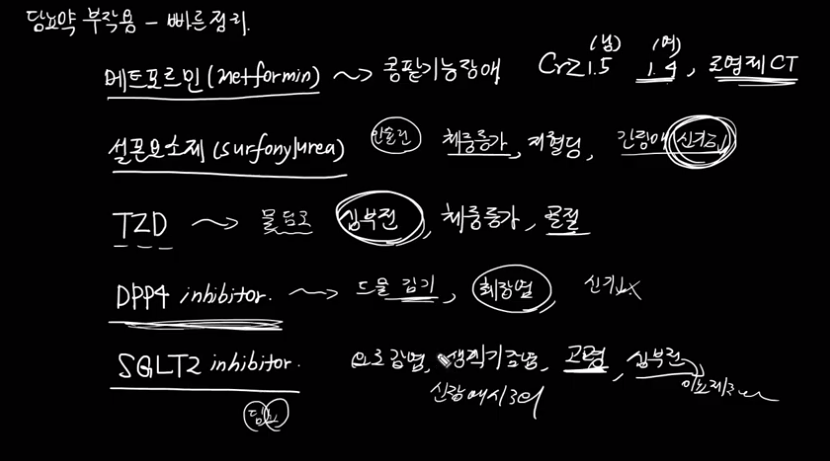 당뇨약 부작용 - 빠른정리.
메트포르민(metformin) ~> 콩팥기능장애 Cr≥1.5 (남) 1.4 (여), 조영제 CT
설폰요소제(surfonylurea) 인슐린 체중증가, 저혈당, 간장애
TZD ~> 물 심부전, 체중증가, 골절
DPP4 inhibitor. ~> 드물 감기, 췌장염 신기↓x
SGLT2 inhibitor. 요로감염, 생식기감염, 고령, 심부전
당뇨